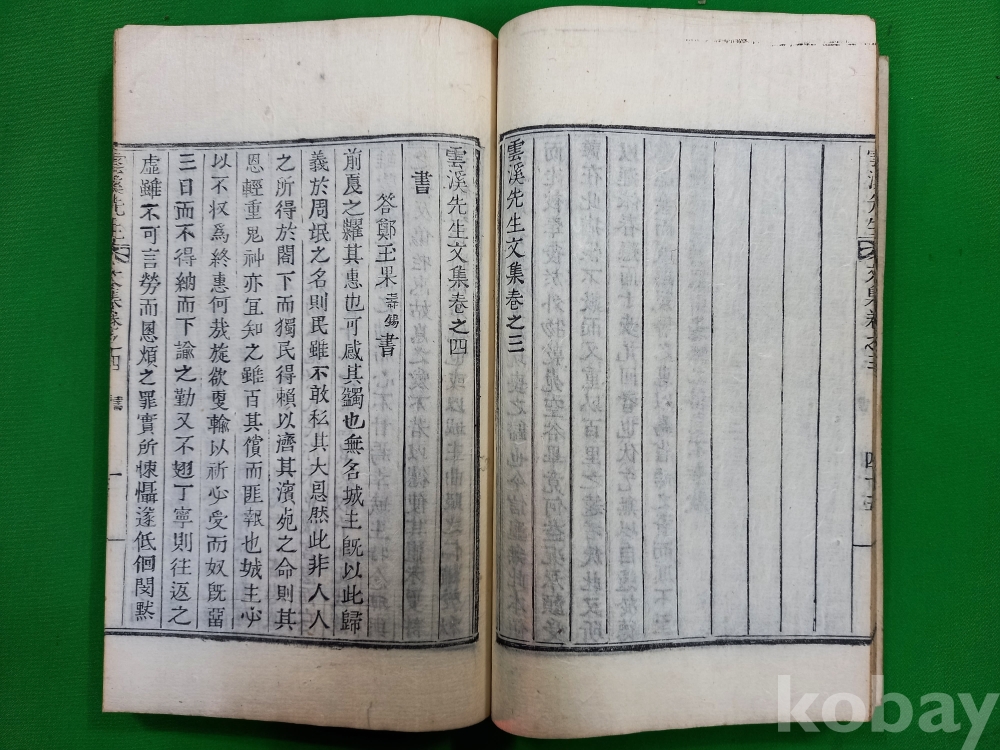 雲溪先生文集卷之三
雲溪先生文集卷之四
書
答鄭玉果 壽錫 書
前戛之糶其惠也可感其蠲也無名城主旣以此歸
義於周氓之名則民雖不敢私其大恩然此非人人
之所得於閤下而獨民得賴以濟其濱死之命則其
恩輕重鬼神亦宜知之雖百其償而匪報也城主必
以不收爲終惠何哉旋欲更輸以祈必受而奴旣留
三日而不得納而下諭之勤又不翅丁寧則往返之
虛雖不可言勞而恩煩之罪實所悚懾遂低佪閔默
雲溪先生文集卷之四 書 一
雲溪先生文集卷之三 書 四十五
kobay